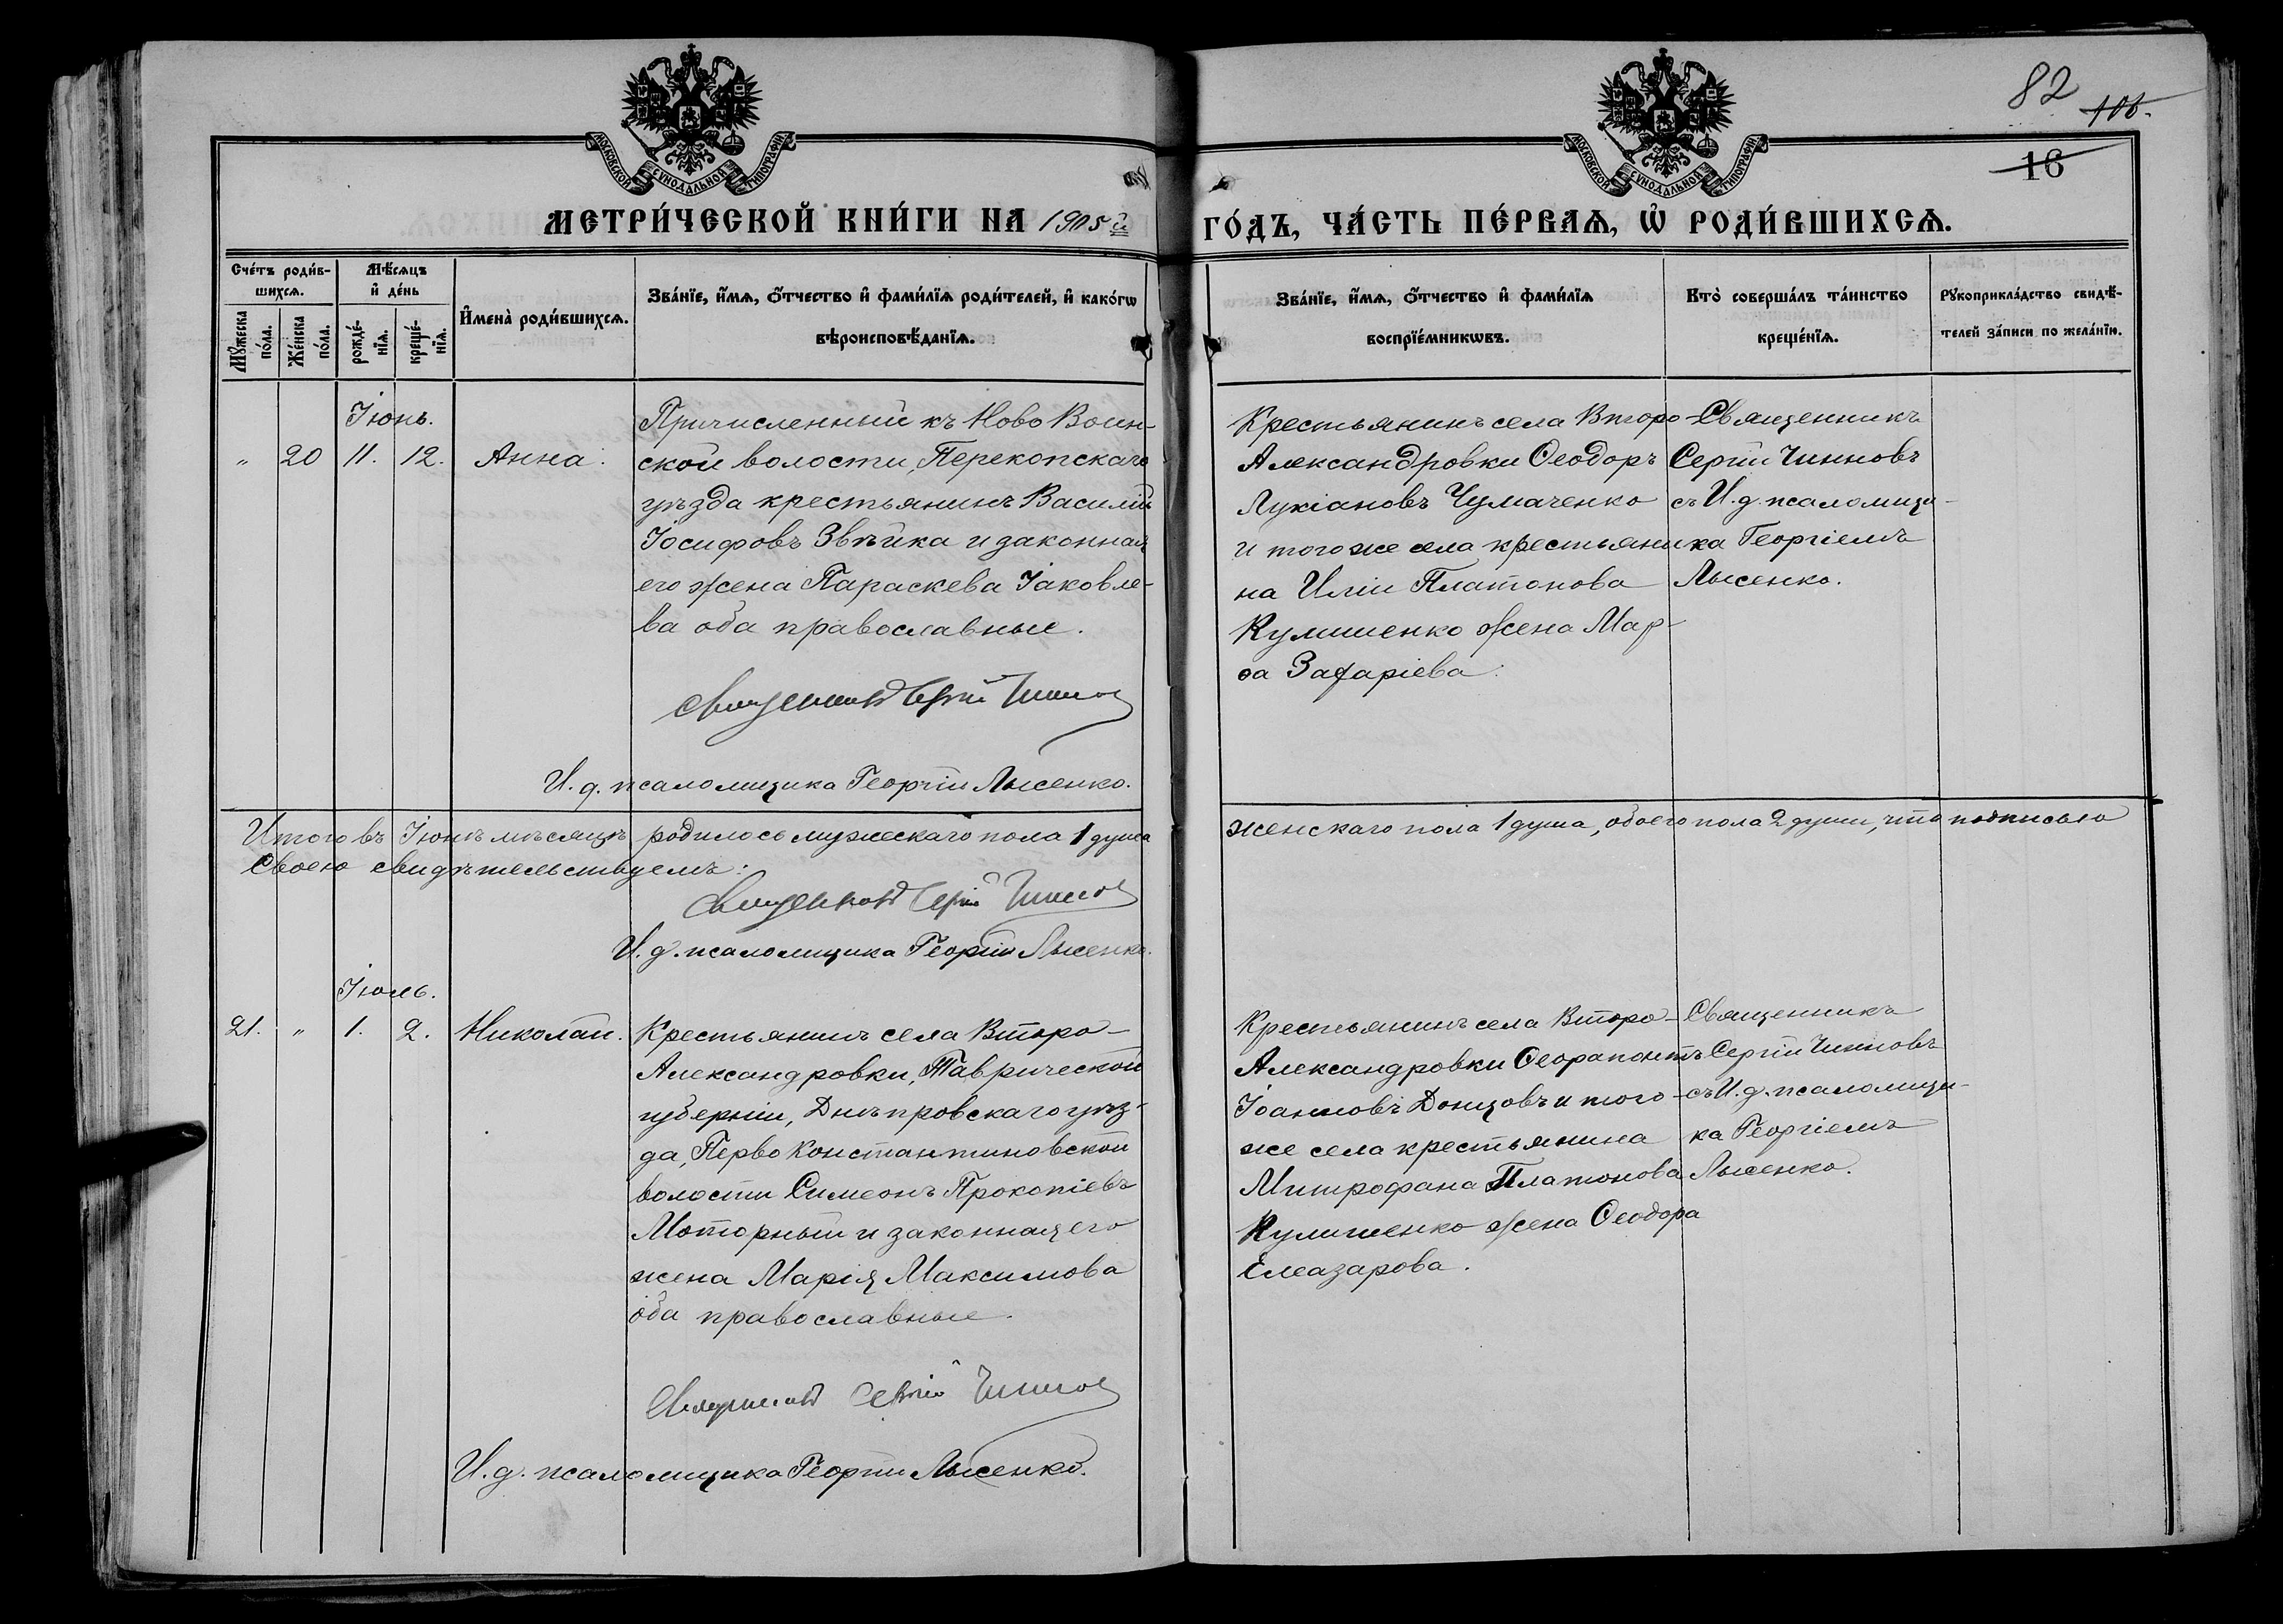 82
106.
16
МОСКОВСКОЙ СѴНОДАЛЬНОЙ ТИПОГРАФІИ
МОСКОВСКОЙ СѴНОДАЛЬНОЙ ТИПОГРАФІИ
МЕТРИ́ЧЕСКОЙ КНИ́ГИ НА 1905й ГО́ДЪ, ЧА́СТЬ ПЕ́РВАѦ, Ѡ҆ РОДИ́ВШИХСѦ.
Сче́тъ роди́в-
шихсѧ.
Мꙋ́жеска
по́ла.
Же́нска
по́ла.
Мѣ́сѧцъ
и҆ де́нь
рожде́-
нїѧ.
креще́-
нїѧ.
И҆мена̀ роди́вшихсѧ.
Зва́нїе, и҆́мѧ, ѻ҆́тчество и҆ фами́лїѧ роди́телей, и҆ како́гѡ
вѣроисповѣ́данїѧ.
Зва́нїе, и҆́мѧ, ѻ҆́тчество и҆ фами́лїѧ
воспрїе́мникѡвъ.
Кто̀ соверша́лъ та́инство
креще́нїѧ.
Рꙋкоприкла́дство свидѣ́-
телей за́писи по жела́нїю.
Іюнь.
" 20 11. 12. Анна.
Причисленный къ Ново Воин-
ской волости, Перекопскаго
уѣзда крестьянинъ Василій
Іосифовъ Звѣйка и законная
его жена Параскева Іаковле-
ва оба православные.
Священникъ Сергій Чиннов
И. д. псаломщика Георгій Лысенко.
Крестьянинъ села Второ-
Александровки Ѳеодоръ
Лукіановъ Чумаченко
и того же села крестьяни-
на Иліи Платонова
Кулишенко жена Мар-
ѳа Захаріева.
Священникъ
Сергій Чинновъ
съ И. д. псаломщи-
ка Георгіемъ
Лысенко.
Итого въ Іюнѣ мѣсяцѣ родилось мужескаго пола 1 душа женскаго пола 1 душа, обоего пола 2 души, что подписью
своею свидѣтельствуемъ:
Священникъ Сергій Чиннов
И. д. псаломщика Георгій Лысенко.
Іюль.
21. " 1. 2. Николай.
Крестьянинъ села Второ-
Александровки, Таврической
губерніи, Днѣпровскаго уѣз-
да, Перво Константиновской
волости Симеонъ Прокопіевъ
Моторный и законная его
жена Марія Максимова
оба православные.
Священникъ Сергій Чиннов
И. д. псаломщика Георгій Лысенко.
Крестьянинъ села Второ-
Александровки Ѳерапонтъ
Іоанновъ Донцовъ и того-
же села крестьянина
Митрофана Платонова
Кулишенко жена Ѳеодора
Елеазарова.
Священникъ
Сергій Чинновъ
съ И. д. псаломщи-
ка Георгіемъ
Лысенко.